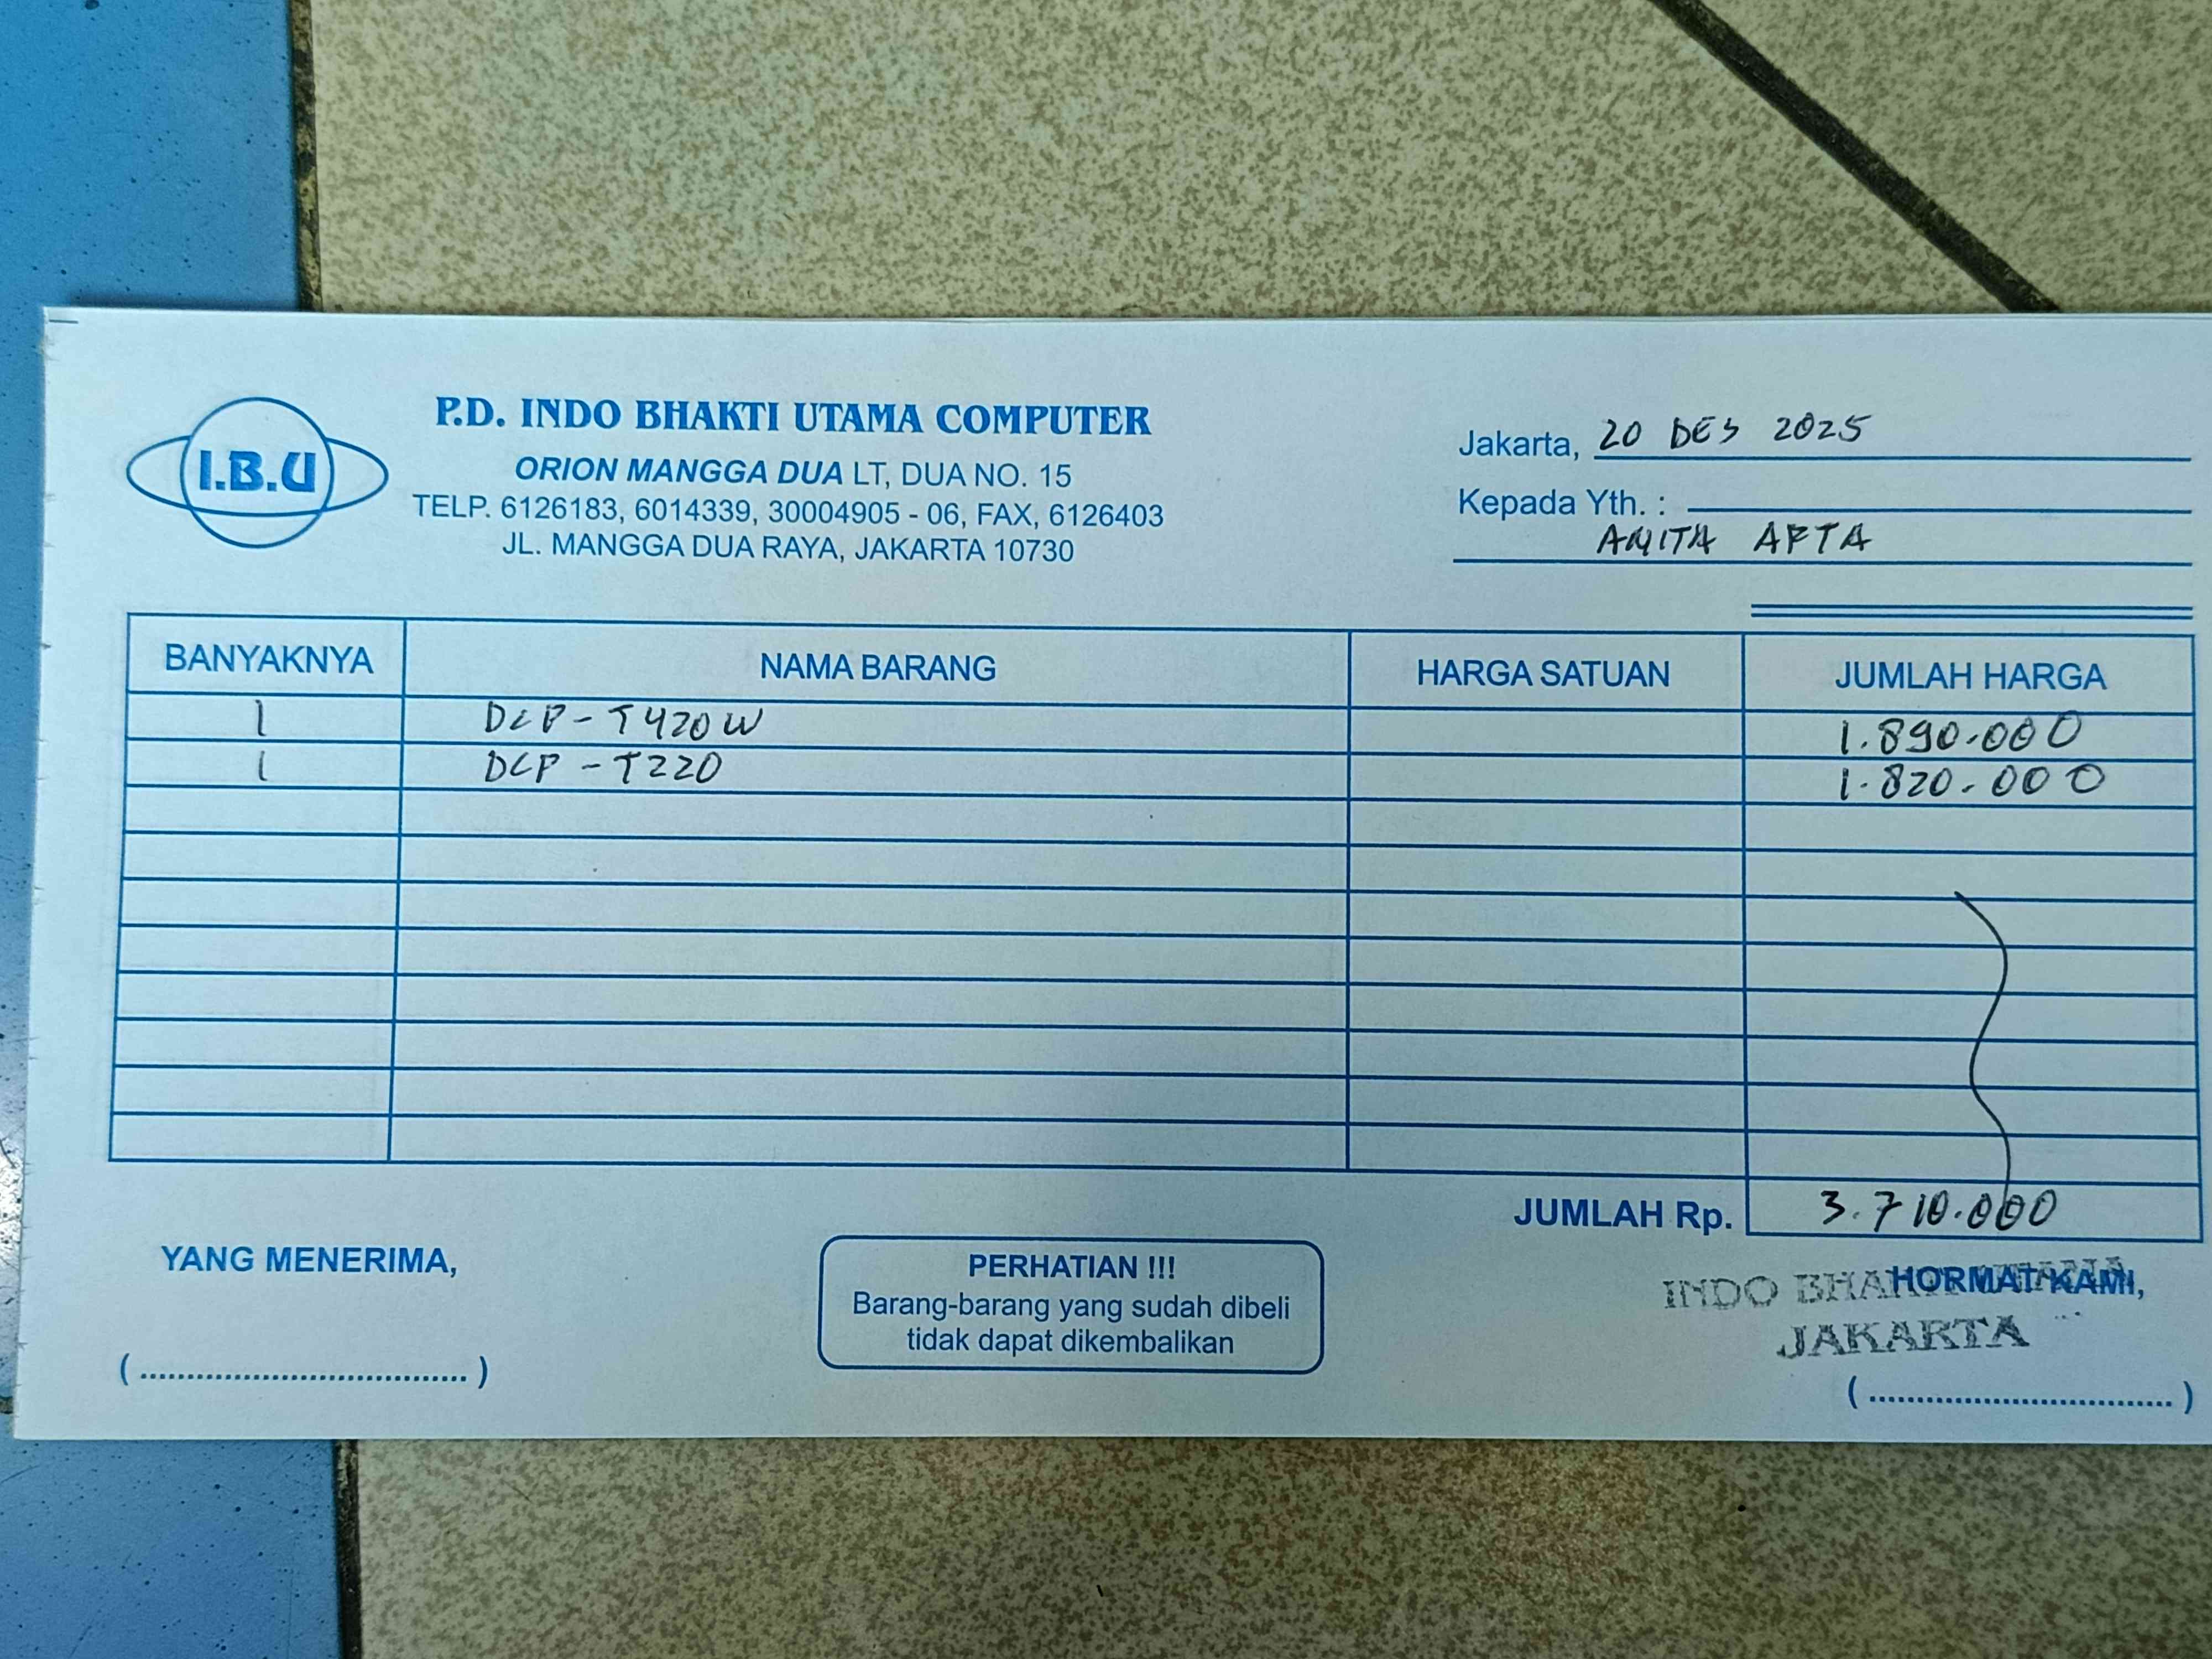 I.B.U
P.D. INDO BHAKTI UTAMA COMPUTER
ORION MANGGA DUA LT, DUA NO. 15
TELP. 6126183, 6014339, 30004905 - 06, FAX, 6126403
JL. MANGGA DUA RAYA, JAKARTA 10730
Jakarta, 20 DES 2025
Kepada Yth. :
ANITA ARTA
BANYAKNYA NAMA BARANG HARGA SATUAN JUMLAH HARGA
1 DCP - T420W 1.890.000
1 DCP - T220 1.820.000
JUMLAH Rp. 3.710.000
YANG MENERIMA,
(....................................)
PERHATIAN !!!
Barang-barang yang sudah dibeli
tidak dapat dikembalikan
HORMAT KAMI,
INDO BHAKTI UTAMA
JAKARTA
(.................................)